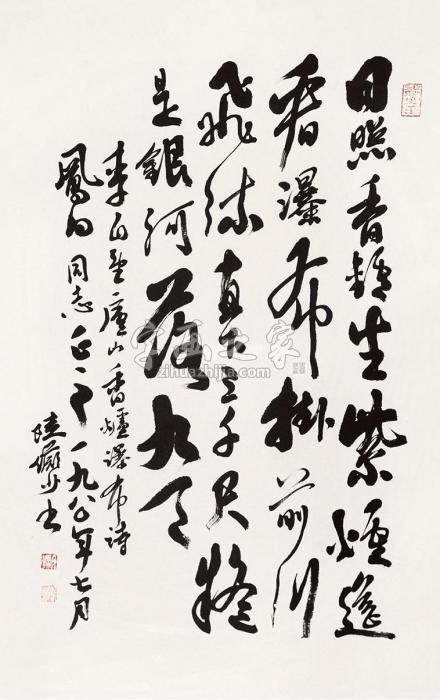 日照香鑪生紫煙遙
看瀑布掛前川
飛流直下三千尺疑
是銀河落九天
李白望廬山香爐瀑布詩
鳳同志正之一九八〇年七月
陸儼少书
字画之家
zihuazhijia.com